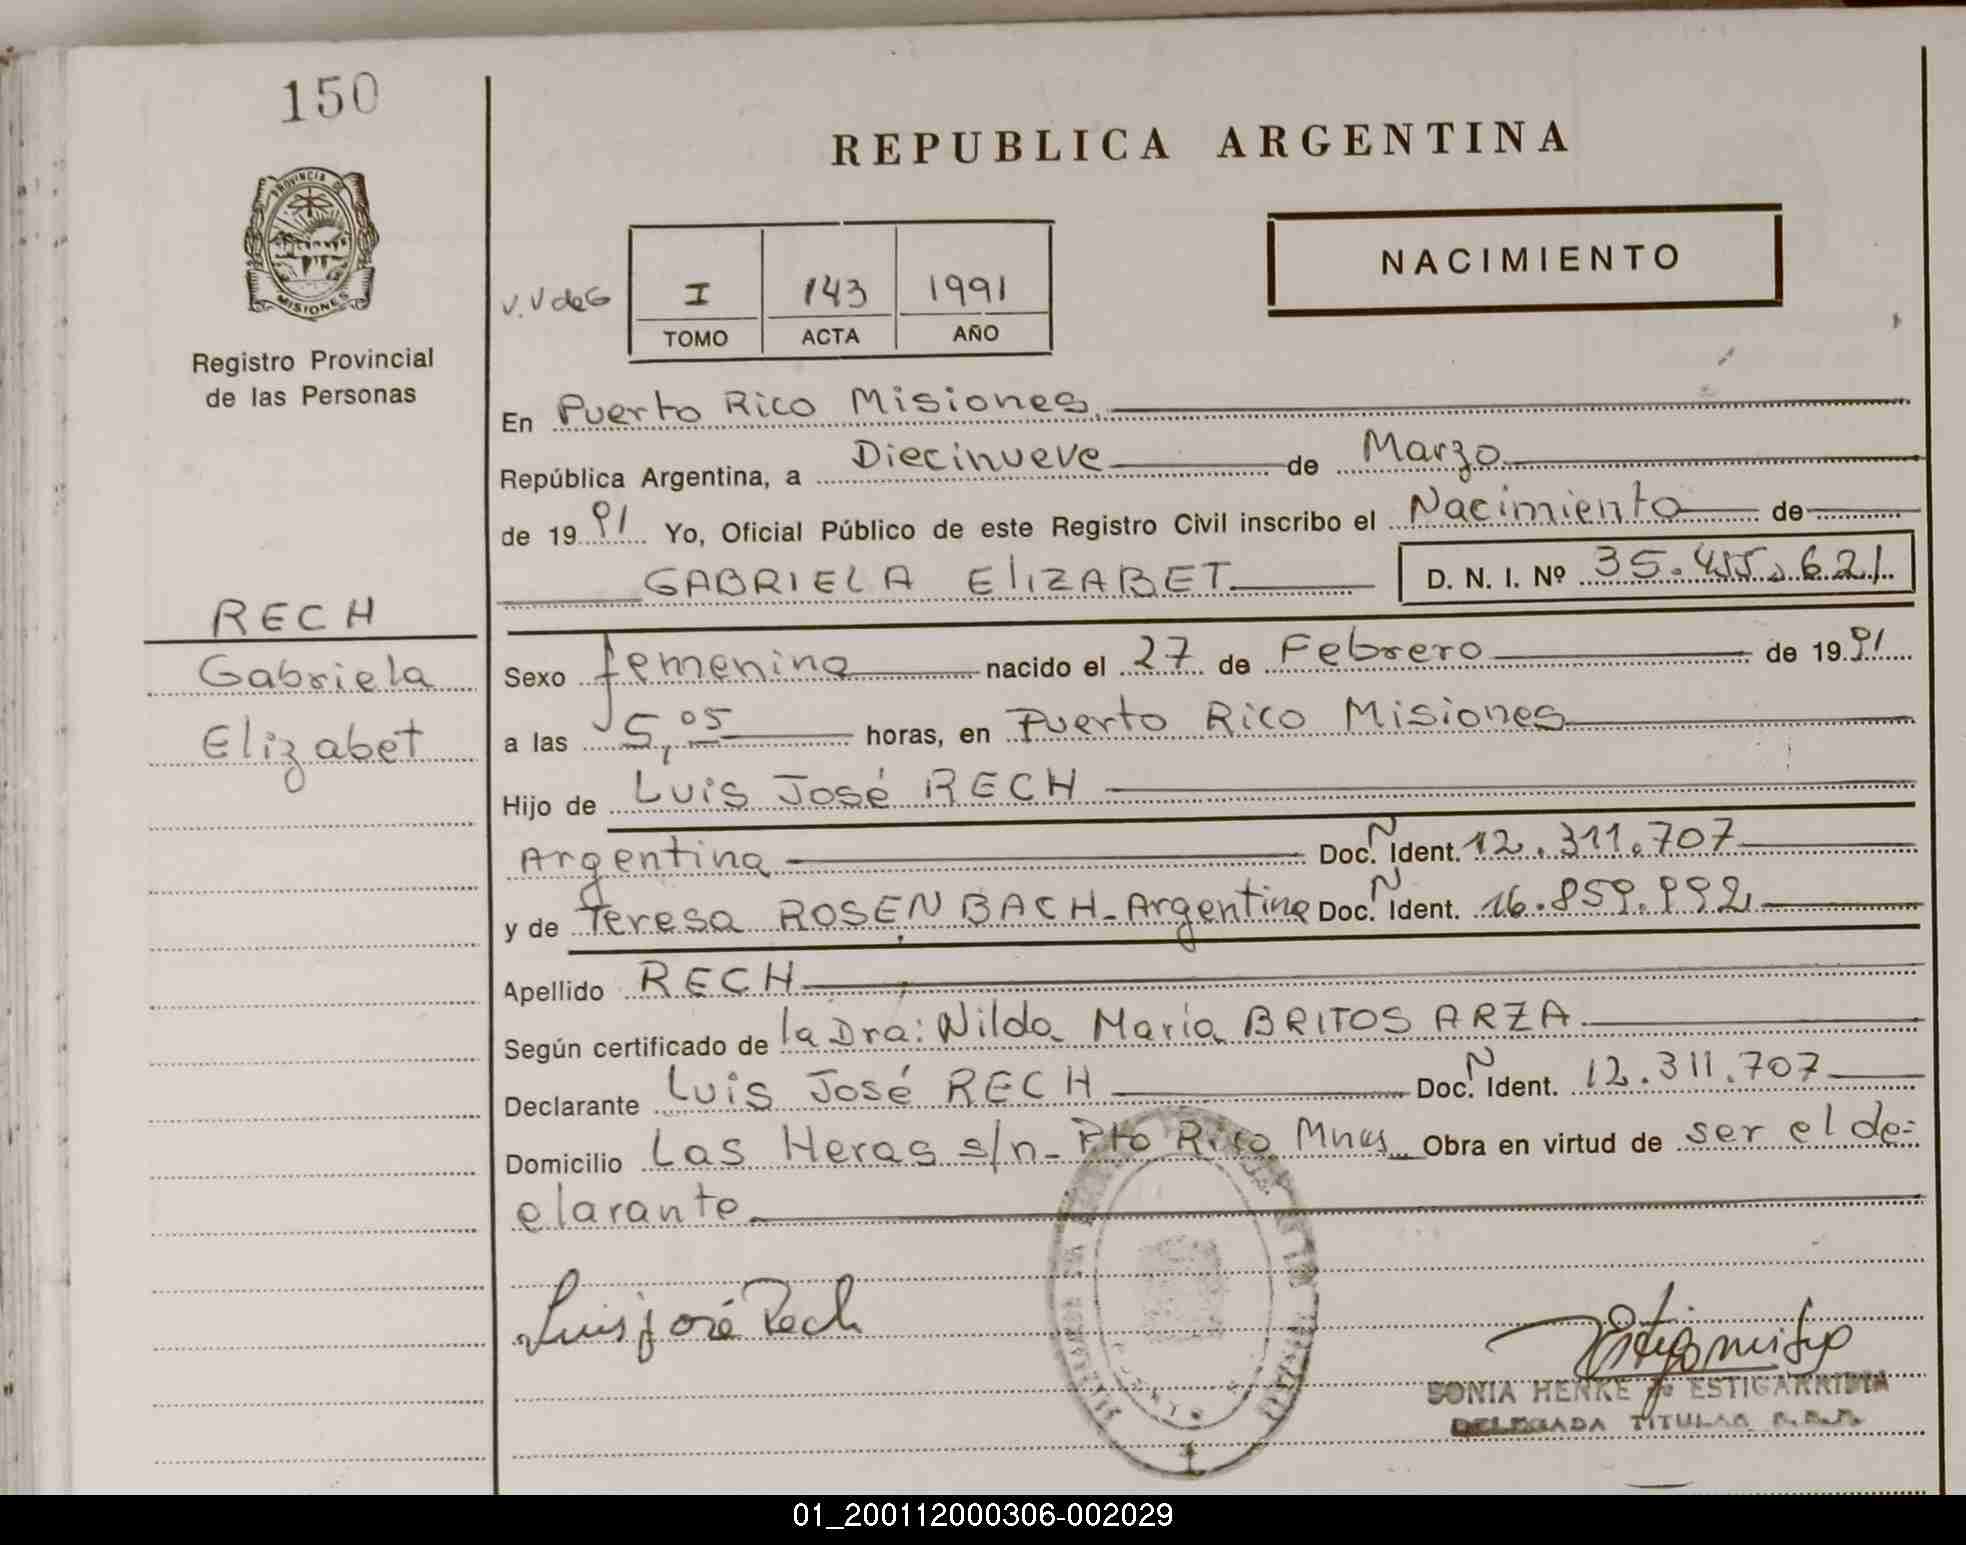 150
PROVINCIA DE
MISIONES
Registro Provincial
de las Personas
RECH
Gabriela
Elizabet
REPUBLICA ARGENTINA
NACIMIENTO
V.V de G
I 143 1991
TOMO ACTA AÑO
En Puerto Rico Misiones
República Argentina, a Diecinueve de Marzo
de 1991 Yo, Oficial Público de este Registro Civil inscribo el Nacimiento de
GABRIELA ElIZABET D. N. I. Nº 35.455.621
Sexo femenino nacido el 27 de Febrero de 1991
a las 5,05 horas, en Puerto Rico Misiones
Hijo de Luis José RECH
Argentina Doc. N Ident. 12.311.707
y de Teresa ROSENBACH - Argentina Doc. N Ident. 16.859.992
Apellido RECH
Según certificado de la Dra: Nilda María BRITOS ARZA
Declarante Luis José RECH Doc. N Ident. 12.311.707
Domicilio Las Heras s/n - Pto Rico Mnes Obra en virtud de ser el de=
clarante
Luis josé Rech
SONIA HENKE de ESTIGARRIBIA
DELEGADA TITULAR R.R.P.
01_200112000306-002029